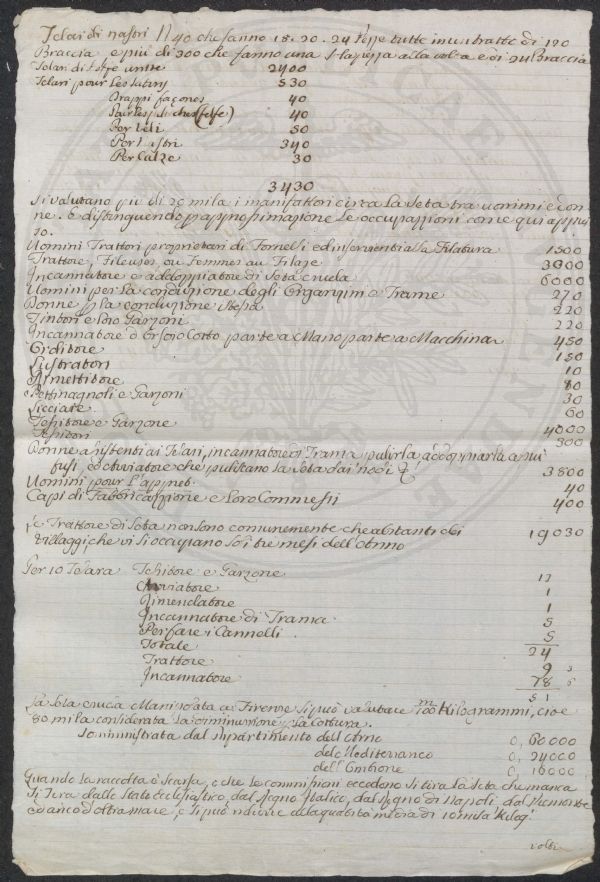 Telari di nastri N 40 che fanno 18. 20. 24 pezze tutte in un tratto di 120
Braccia e più di 300 che fanno una pezza alla volta e di Braccia
Telari di unite 2400
Telari pour Les 530
Drappi façonés 40
40
Per Teli 50
Per Nastri 340
Per Calze 30
3430
Si valutano più di 19 mila i manifattori circa La Seta tra uomini e don
ne. e distinguendo p approssimazione Le occupazioni come qui appres
so.
Uomini Trattori proprietari di Fornelli ed inservienti alla Filatura 1500
Trattore, Fileuses, ou Femmes au Filage 3000
Incannatore e addoppiatore di Seta cruda 6000
Uomini per la conduzione degli Organzini e Trame 270
Donne p la conduzione stessa 220
Tintori e Loro Garzoni 220
Incannatore d'Orsoio Cotto parte a Mano parte a Macchina 450
Orditore 150
Lustratori 10
Rimettitore 80
Pettinagnoli e Garzoni 30
Licciate 60
Tessitore e Garzone 4000
Tessitori 300
Donne assistenti ai Telari, incannatore di Trama, pulirla, addoppiarla a più
fusi, ed ovviatore che puliscano la Seta dai nodi &c 3800
Uomini pour l'appret. 40
Capi di Fabbricazione e Loro Commessi 400
Le Trattore di Seta non sono comunemente che abitanti dei 19030
Villaggi, che vi si occupano soli tre mesi dell'Anno
Per 10 Telara Tessitore e Garzone 12
Ovviatore 1
Rimendatore 1
Incannatore di Trama 5
Per fare i Cannelli. 5
Totale 24
Trattore 9
Incannatore 18
51
La Seta cruda Manifatturata a Firenze si può valutare 100 Kilogrammi, cioè
80 mila considerata la diminuzione p La Cottura.
Somministrata dal Dipartimento dell'Arno 0, 60000
del Mediterraneo 0, 24000
dell'Ombrone 0, 16000
Quando la raccolta è scarsa, o che le commissioni eccedono si tira La Seta che manca
Si tira dallo Stato Ecclesiastico, dal Regno Italico, dal Regno di Napoli dal Piemonte
ed anco d'oltramare, e si può ridurre alla quantità media di 10 mila Kilog.
volti